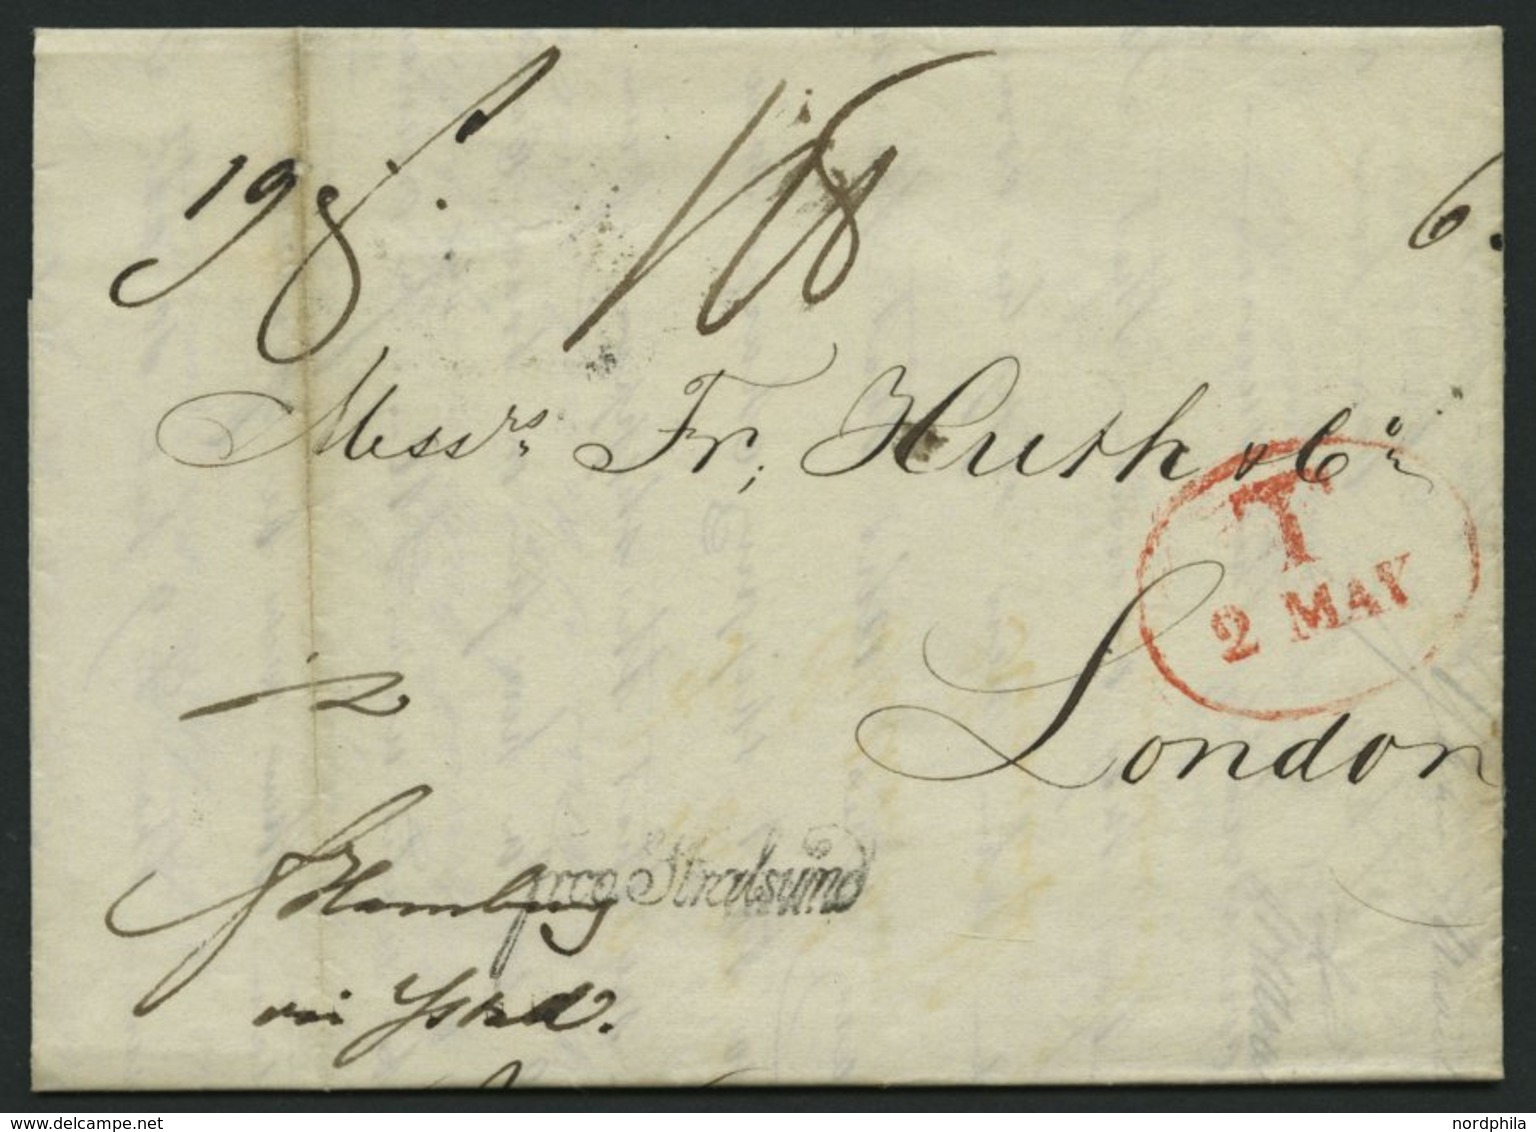 19
1/8
6.
Messrs Fr. Huth & Co
T
2 MAY
London
12
fr Hamburg
pro Stralsund
via Ystad.
delcampe.net
nordphila